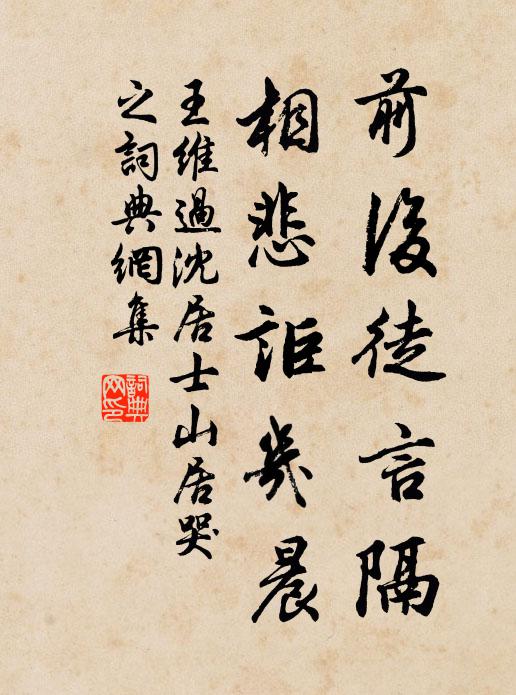 前後徒言隔
相悲詎幾晨
王維過沈居士山居哭
之詞典網集
詞典
网印